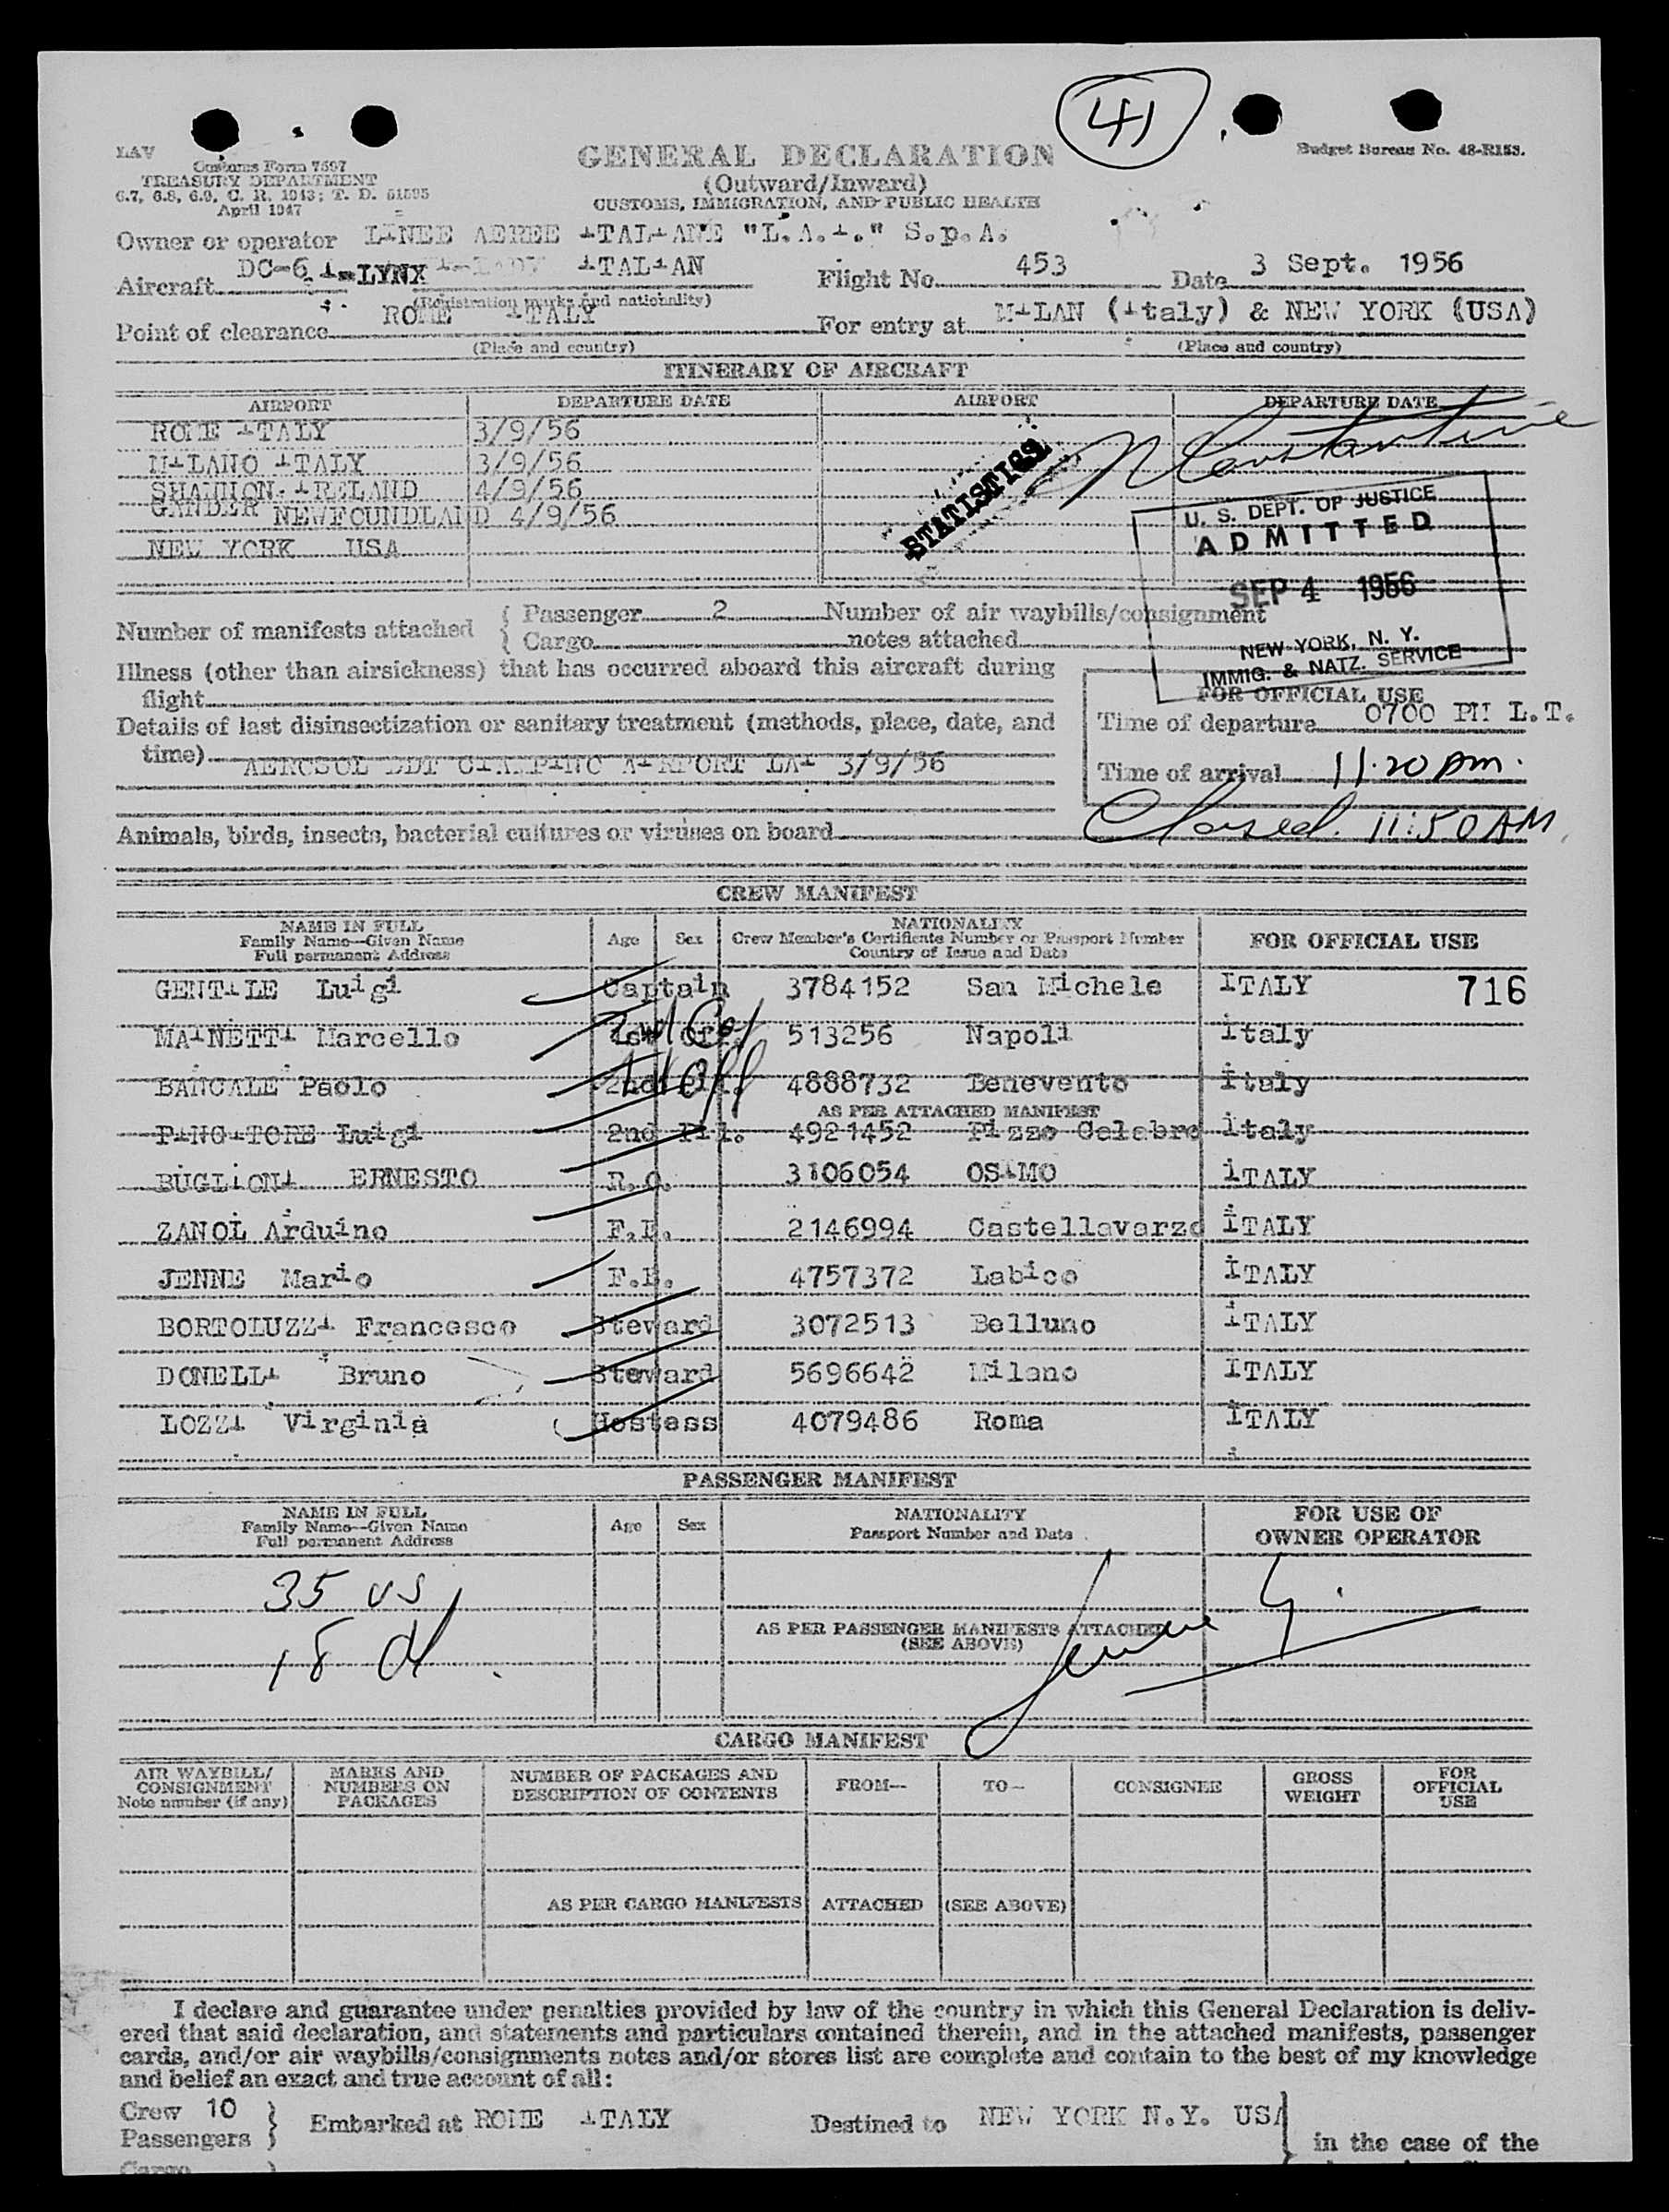 41
LAV
Customs Form 7507
TREASURY DEPARTMENT
6.7, 6.8, 6.9, C. R. 1943; T. D. 51595
April 1947
GENERAL DECLARATION
(Outward/Inward)
CUSTOMS, IMMIGRATION, AND PUBLIC HEALTH
Budget Bureau No. 48-R133.
Owner or operator LINEE AEREE ITALIANE "L.A.I." S.p.A.
Aircraft DC-6 I-LYNX ITALIAN Flight No. 453 Date 3 Sept. 1956
(Registration marks and nationality)
Point of clearance ROME ITALY For entry at MILAN (italy) & NEW YORK (USA)
(Place and country) (Place and country)
ITINERARY OF AIRCRAFT
AIRPORT DEPARTURE DATE AIRPORT DEPARTURE DATE
ROME ITALY 3/9/56
MILANO ITALY 3/9/56
SHANNON IRELAND 4/9/56
GANDER NEWFOUNDLAND 4/9/56
NEW YORK USA
STATISTICS
Constantine
U. S. DEPT. OF JUSTICE
ADMITTED
SEP 4 1956
NEW YORK, N. Y.
IMMIG. & NATZ. SERVICE
Number of manifests attached { Passenger 2 Number of air waybills/consignment
{ Cargo notes attached
Illness (other than airsickness) that has occurred aboard this aircraft during
flight
Details of last disinsectization or sanitary treatment (methods, place, date, and
time) AEROSOL DDT CIAMPINO AIRPORT LAI 3/9/56
FOR OFFICIAL USE
Time of departure 0700 PM L.T.
Time of arrival 11:20 am.
Closed. 11:50 AM
Animals, birds, insects, bacterial cultures or viruses on board
CREW MANIFEST
NAME IN FULL
Family Name—Given Name
Full permanent Address
Age Sex
NATIONALITY
Crew Member's Certificate Number or Passport Number
Country of Issue and Date
FOR OFFICIAL USE
GENTILE Luigi Captain 3784152 San Michele ITALY 716
MAINETTI Marcello 513256 Napoli italy
BANCALE Paolo 2nd Pil. 4888732 Benevento italy
AS PER ATTACHED MANIFEST
PINGITORE Luigi 2nd Pil. 4921452 Pizzo Calabro italy
BUGLIONI ERNESTO R.O. 3106054 OSIMO ITALY
ZANOI Arduino F.E. 2146994 Castellavarzo ITALY
JENNE Mario F.E. 4757372 Labico ITALY
BORTOLUZZI Francesco Steward 3072513 Belluno ITALY
DONELLI Bruno Steward 5696642 Milano ITALY
LOZZI Virginia Hostess 4079486 Roma ITALY
PASSENGER MANIFEST
NAME IN FULL
Family Name—Given Name
Full permanent Address
Age Sex
NATIONALITY
Passport Number and Date
FOR USE OF
OWNER OPERATOR
35 US
18
AS PER PASSENGER MANIFESTS ATTACHED
(SEE ABOVE)
CARGO MANIFEST
AIR WAYBILL/
CONSIGNMENT
Note number (if any)
MARKS AND
NUMBERS ON
PACKAGES
NUMBER OF PACKAGES AND
DESCRIPTION OF CONTENTS
FROM—
TO—
CONSIGNEE
GROSS
WEIGHT
FOR
OFFICIAL
USE
AS PER CARGO MANIFESTS ATTACHED (SEE ABOVE)
I declare and guarantee under penalties provided by law of the country in which this General Declaration is deliv-
ered that said declaration, and statements and particulars contained therein, and in the attached manifests, passenger
cards, and/or air waybills/consignments notes and/or stores list are complete and contain to the best of my knowledge
and belief an exact and true account of all:
Crew 10
Passengers
Embarked at ROME ITALY Destined to NEW YORK N.Y. USA
in the case of the
Cargo